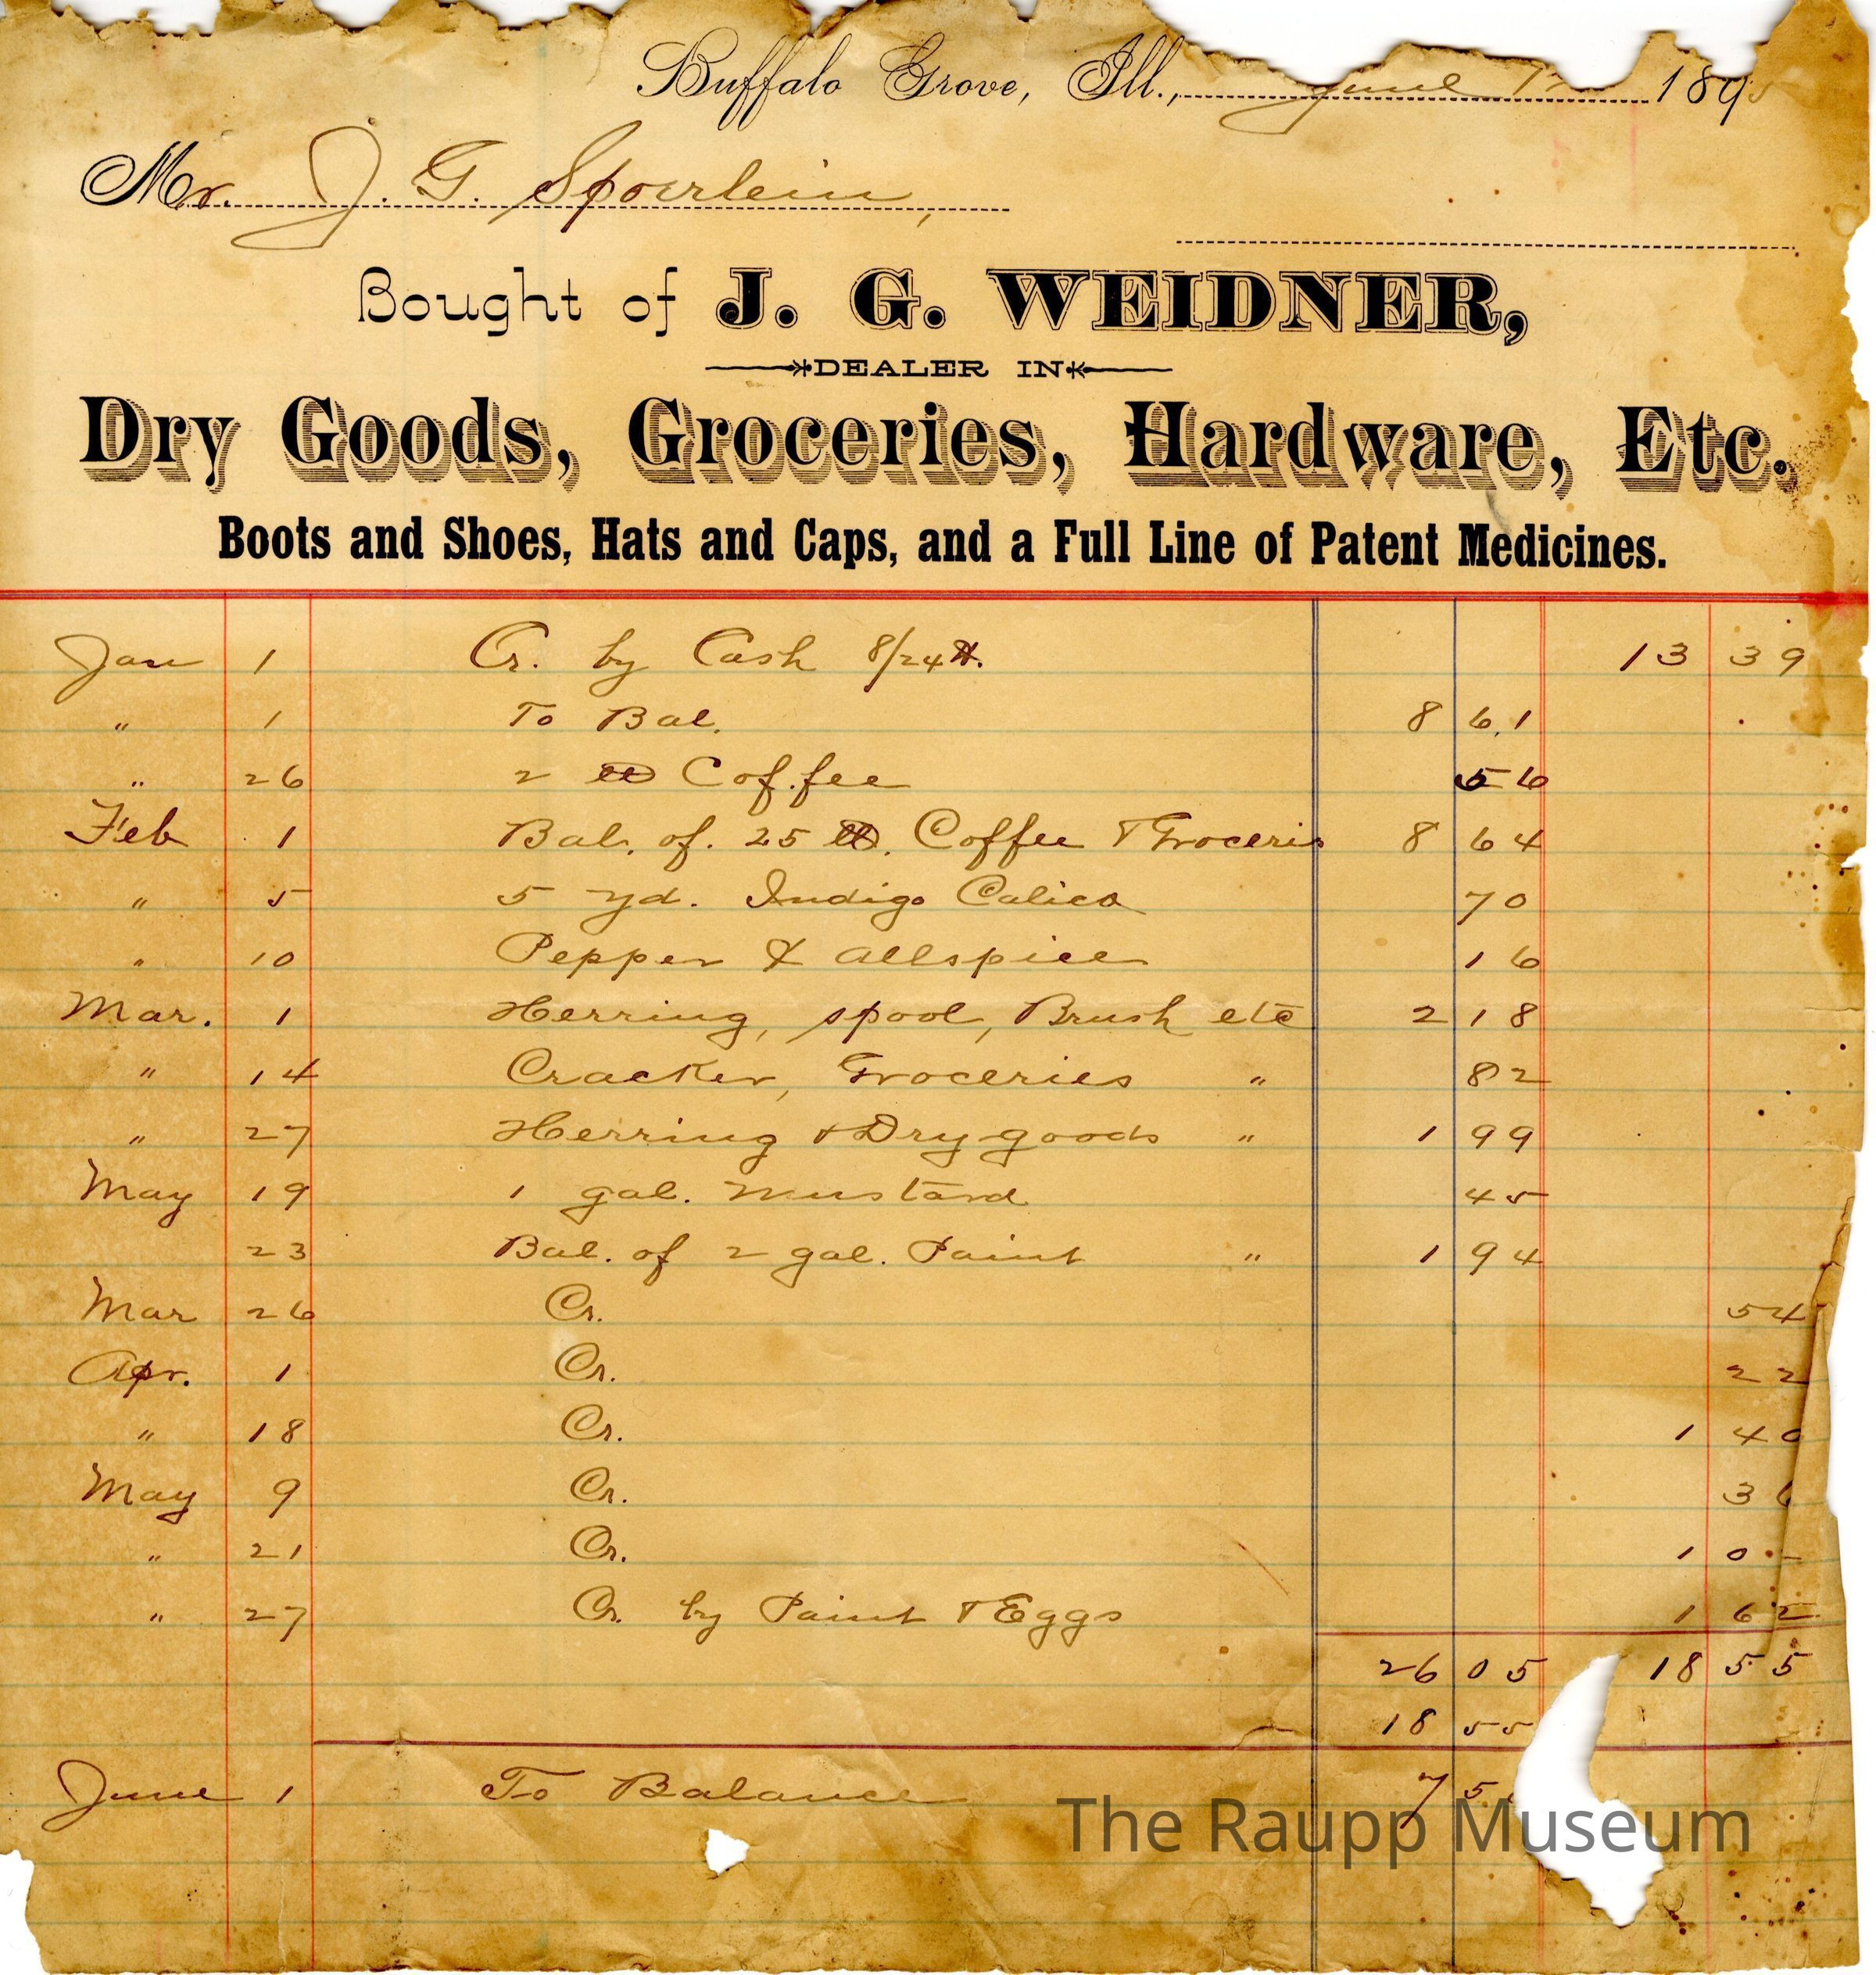 Buffalo Grove, Ill., June 1 189
Mr. J. G. Spoerlein,
Bought of J. G. WEIDNER,
DEALER IN
Dry Goods, Groceries, Hardware, Etc.
Boots and Shoes, Hats and Caps, and a Full Line of Patent Medicines.
Jan 1 Cr. by Cash 8/24 13 39
" 1 To Bal. 8 61
" 26 2 lb Coffee 56
Feb 1 Bal. of. 25 lb. Coffee & Groceris 8 64
" 5 5 yd. Indigo Calico 70
" 10 Pepper & Allspice 16
Mar. 1 Herring, spool, Brush etc 2 18
" 14 Cracker, Groceries " 82
" 27 Herring & Dry goods " 1 99
May 19 1 gal. Mustard 45
23 Bal. of 2 gal. Paint " 1 94
Mar 26 Cr. 54
Apr. 1 Cr. 22
" 18 Cr. 1 40
May 9 Cr. 36
" 21 Cr. 1 0-
" 27 Cr. by Paint & Eggs 1 62
26 05 18 55
18 55
June 1 To Balance 7 5
The Raupp Museum